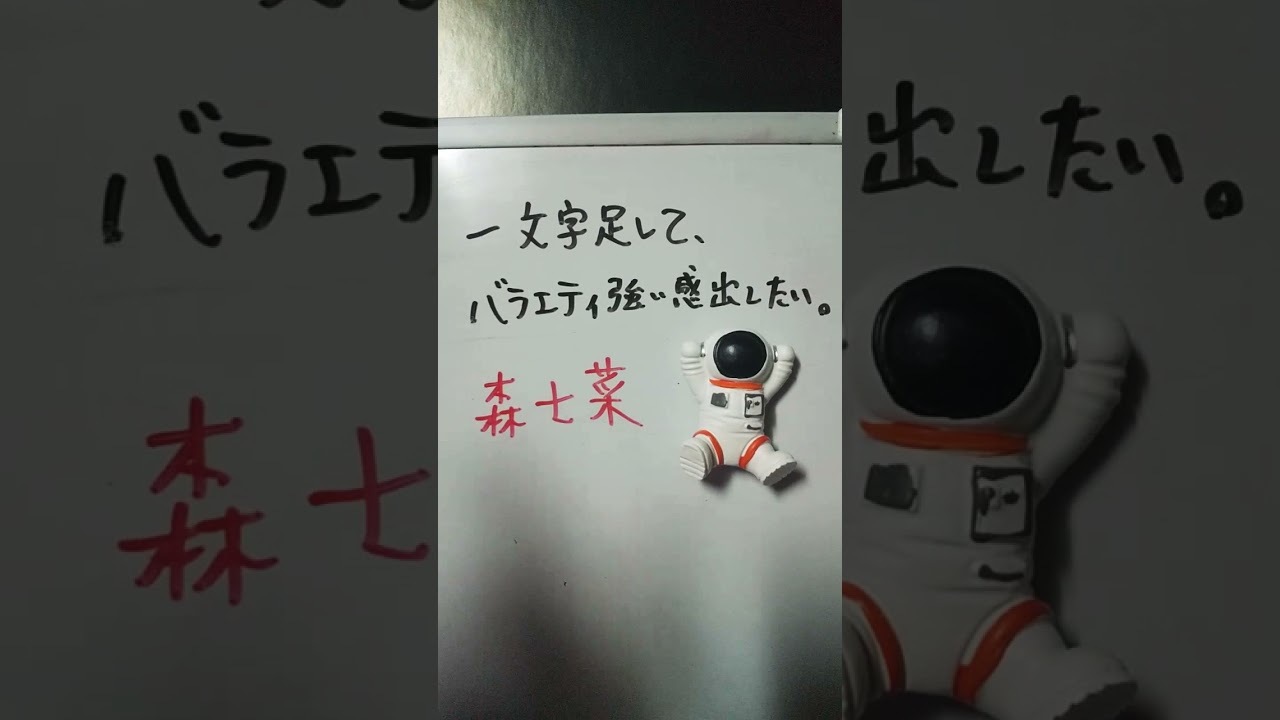 一文字足して、
バラエティ強い感出したい。
森七菜